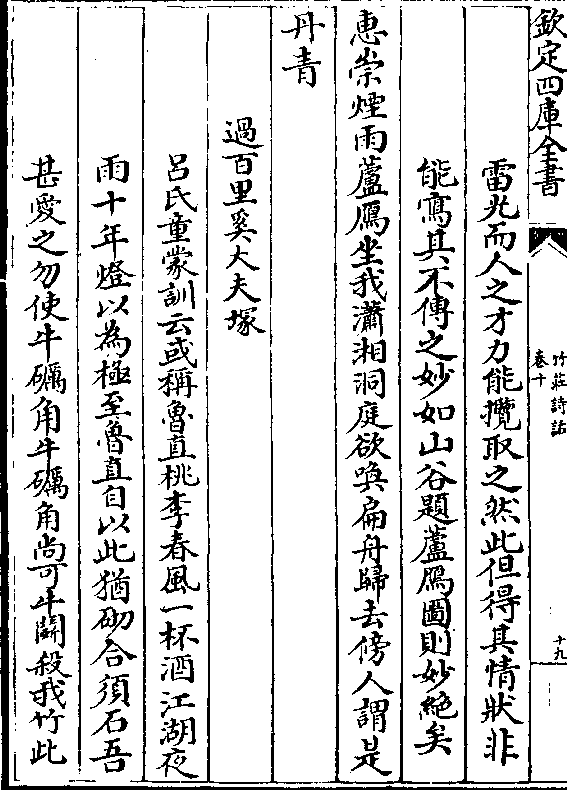 欽定四庫全書
竹莊詩話
卷十
十九
雷光而人之才力能攬取之然此但得其情狀非
能寫其不傳之妙如山谷題蘆鴈圖則妙絶矣
惠崇煙雨蘆鴈坐我瀟湘洞庭欲喚扁舟歸去傍人謂是
丹青
過百里奚大夫塚
呂氏童蒙訓云或稱魯直桃李春風一杯酒江湖夜
雨十年燈以為極至魯直自以此猶砌合須石吾
甚愛之勿使牛礪角牛礪角尚可牛鬬殺我竹此